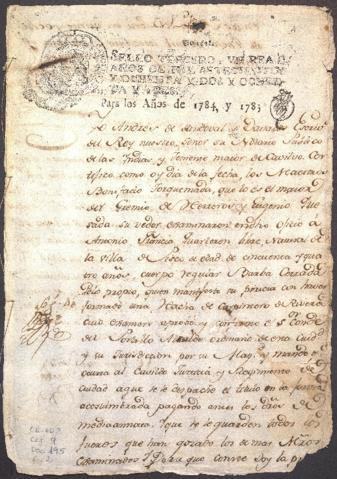 SELLO TERCERO, UN REAL,
AÑOS DE MIL SETECIENTOS
Y OCHENTA Y DOS Y OCHEN-
TA Y TRES.
Para los Años de 1784, y 1785
Yo Andres de Sandoval y Davila Escrivº
del Rey nuestro señor su Notario Publico
de las Indias, y Teniente maior de Cavildo Cer-
tifico como oy dia de la fecha, los Maestros
Bonifacio Torquemada, que lo es el maior
del Gremio de Herreros, y Eugenio Que
sada su vedor examinaron en dicho oficio á
Antonio Quarteron libre, Natural de
la Villa de Pisco de edad de cincuenta y quar
tro años, cuerpo regular Barba Cerrada
Pelo propio, quien manifesto su pericia con haver
formado una Hacha de Carpintero de Rivera
Cuio examen aprovó y confirmo el Sr Conde
del Portillo Alcalde ordinario de esta Ciudad
y su Jurisdiccion por su Mag. y mando
ocurra al Cavildo Justicia y Regimiento de
Ciudad a que se le despache el titulo en la forma
acostumbrada pagando antes los dros de
mediaannata. Y que se le guarden todos los
fueros que han gozado los demas Mros
examinados Y para que conste doy la pre